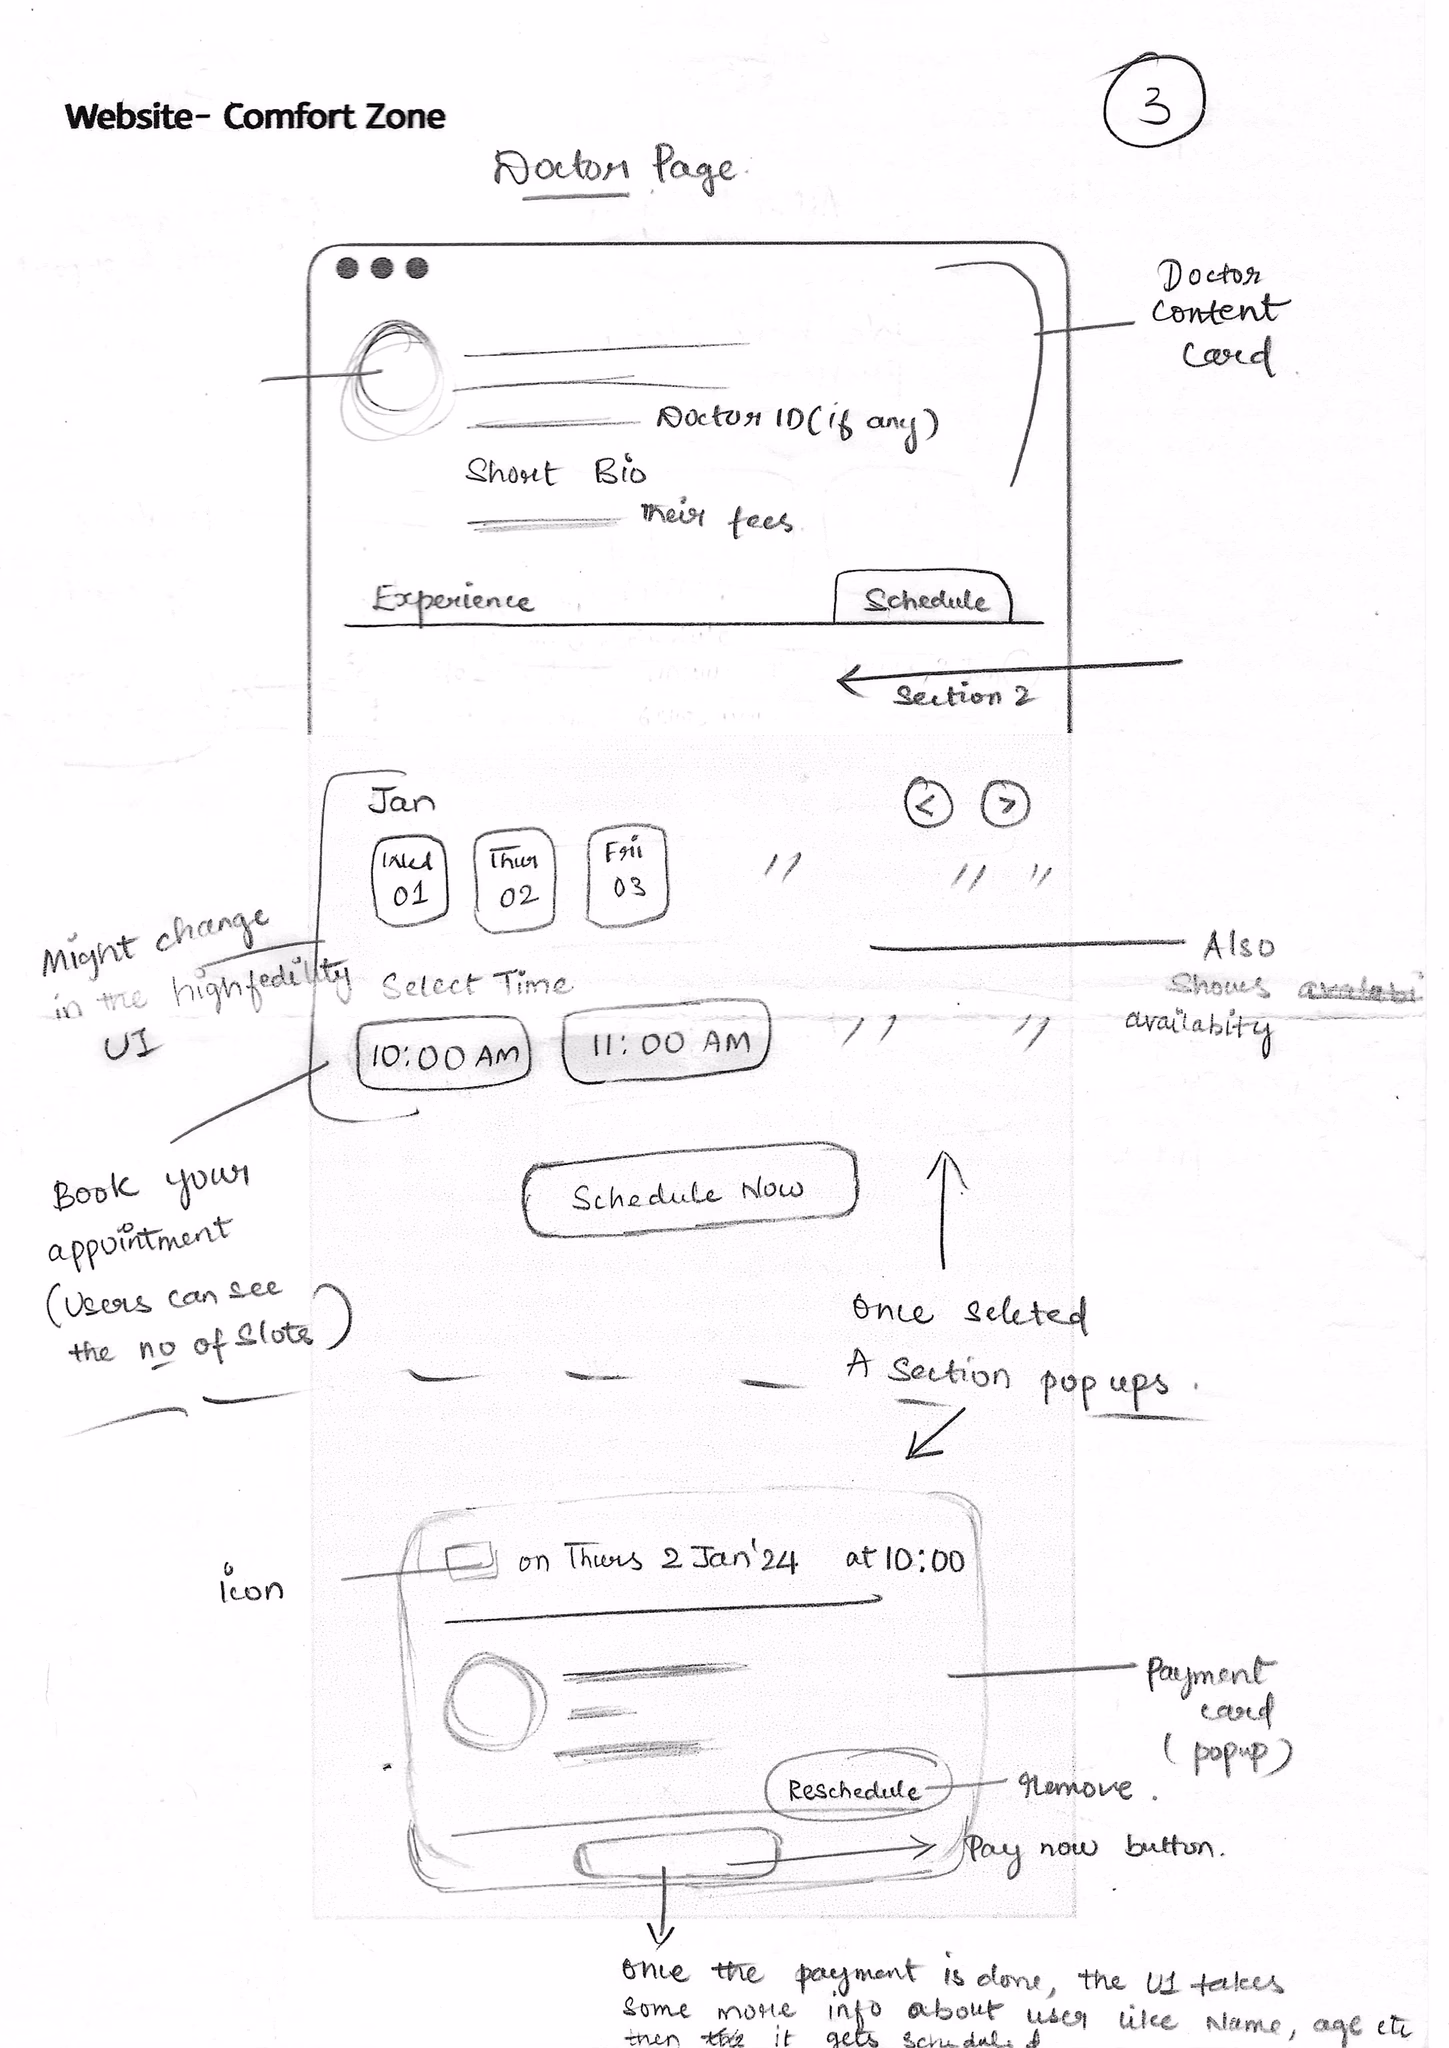 Website- Comfort Zone
3
Doctor Page
Doctor
content
card
Doctor ID (if any)
Short Bio
Their fees
Experience
Schedule
Section 2
Jan
<
>
Wed
01
Thur
02
Fri
03
"
"
"
Might change
in the highfedility
UI
Also
Shows availabi
availabity
Select Time
10:00 AM
11:00 AM
"
"
Book your
appointment
(Users can see
the no of slots)
Schedule Now
Once seleted
A section pop ups.
icon
on Thurs 2 Jan'24 at 10:00
Payment
card
(popup)
Reschedule
Remove.
Pay now button.
Once the payment is done, the UI takes
some more info about user like Name, age etc
then it gets scheduled